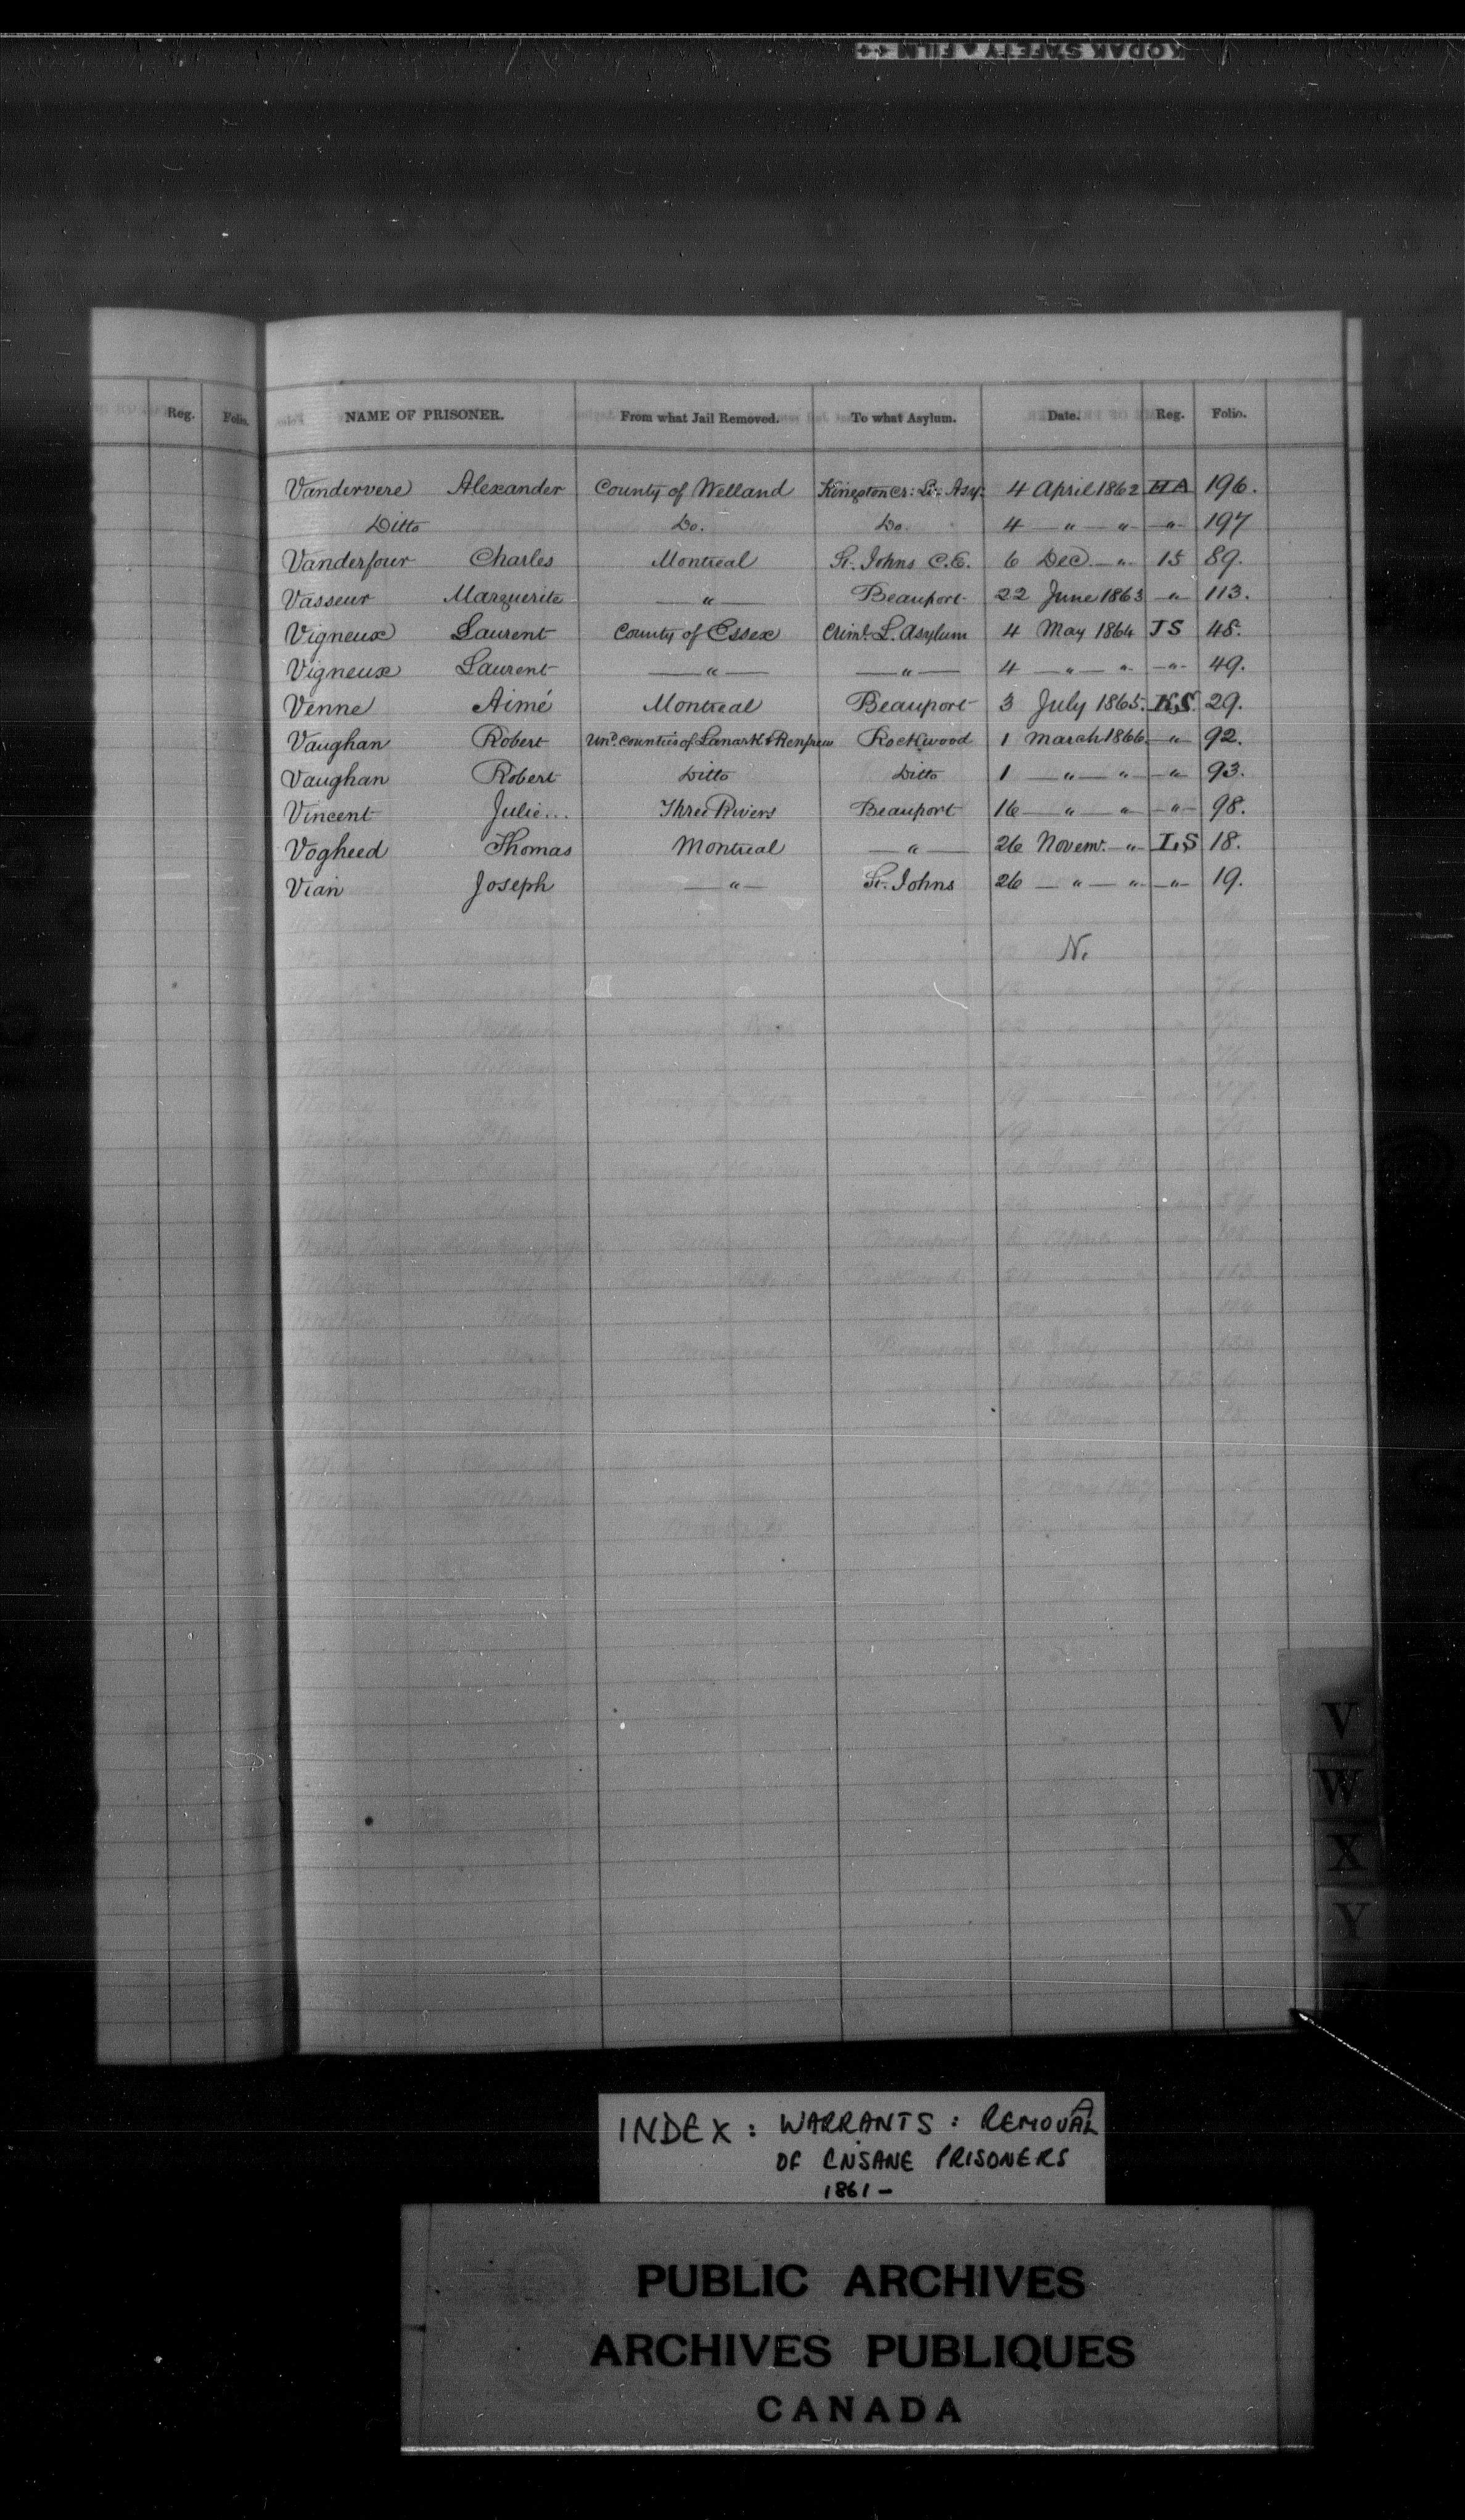 KODAK SAFETY FILM
Reg. Folio.
NAME OF PRISONER. From what Jail Removed. To what Asylum. Date. Reg. Folio.
Vandervere Alexander County of Welland Kingston Cr: Lu: Asy: 4 April 1862 HA 196.
Ditto Do. Do. 4 — " — " — " — 197
Vanderfour Charles Montreal St. Johns C.E. 6 Dec — " — 15 89.
Vasseur Marguerite — " — Beauport 22 June 1863 — " — 113.
Vigneux Laurent County of Essex Criml. L. Asylum 4 May 1864 JS 48.
Vigneux Laurent — " — — " — 4 — " — " — " — 49.
Venne Aimé Montreal Beauport 3 July 1865. KS. 29.
Vaughan Robert Und. Counties of Lanark & Renfrew Rockwood 1 March 1866 — " — 92.
Vaughan Robert Ditto Ditto 1 — " — " — " — 93.
Vincent Julie... Three Rivers Beauport 16 — " — " — " — 98.
Vogheed Thomas Montreal — " — 26 Novemr. — " — LS 18.
Vian Joseph — " — St. Johns 26 — " — " — " — 19.
N.
V
W
X
Y
INDEX: WARRANTS: REMOVAL
OF INSANE PRISONERS
1861 –
PUBLIC ARCHIVES
ARCHIVES PUBLIQUES
CANADA